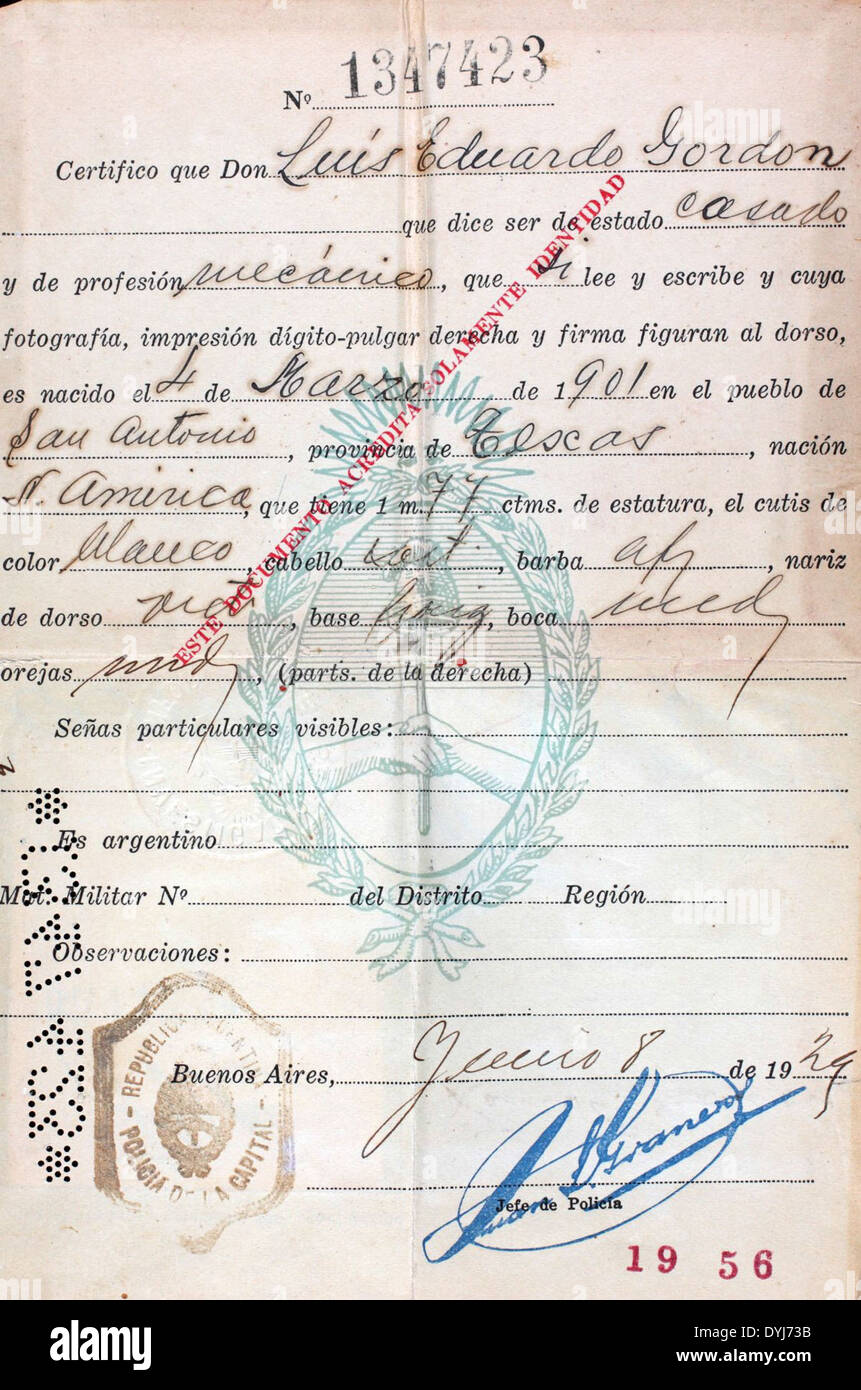 Nº 1347423
Certifico que Don Luís Eduardo Gordon
que dice ser de estado casado
y de profesión mecánico, que si lee y escribe y cuya
fotografía, impresión dígito-pulgar derecha y firma figuran al dorso,
es nacido el 4 de Marzo de 1901 en el pueblo de
San Antonio, provincia de Texcas, nación
N. América, que tiene 1 m. 77 ctms. de estatura, el cutis de
color blanco, cabello cast., barba af, nariz
de dorso rect, base horiz, boca med
orejas med, (parts. de la derecha)
Señas particulares visibles:
Es argentino
Mat. Militar Nº del Distrito Región
Observaciones:
Buenos Aires, Junio 8 de 1929
Jefe de Policía
19 56
ESTE DOCUMENTO ACREDITA SOLAMENTE IDENTIDAD
REPUBLICA ARGENTINA
POLICIA DE LA CAPITAL
alamy
Image ID: DYJ73B
www.alamy.com